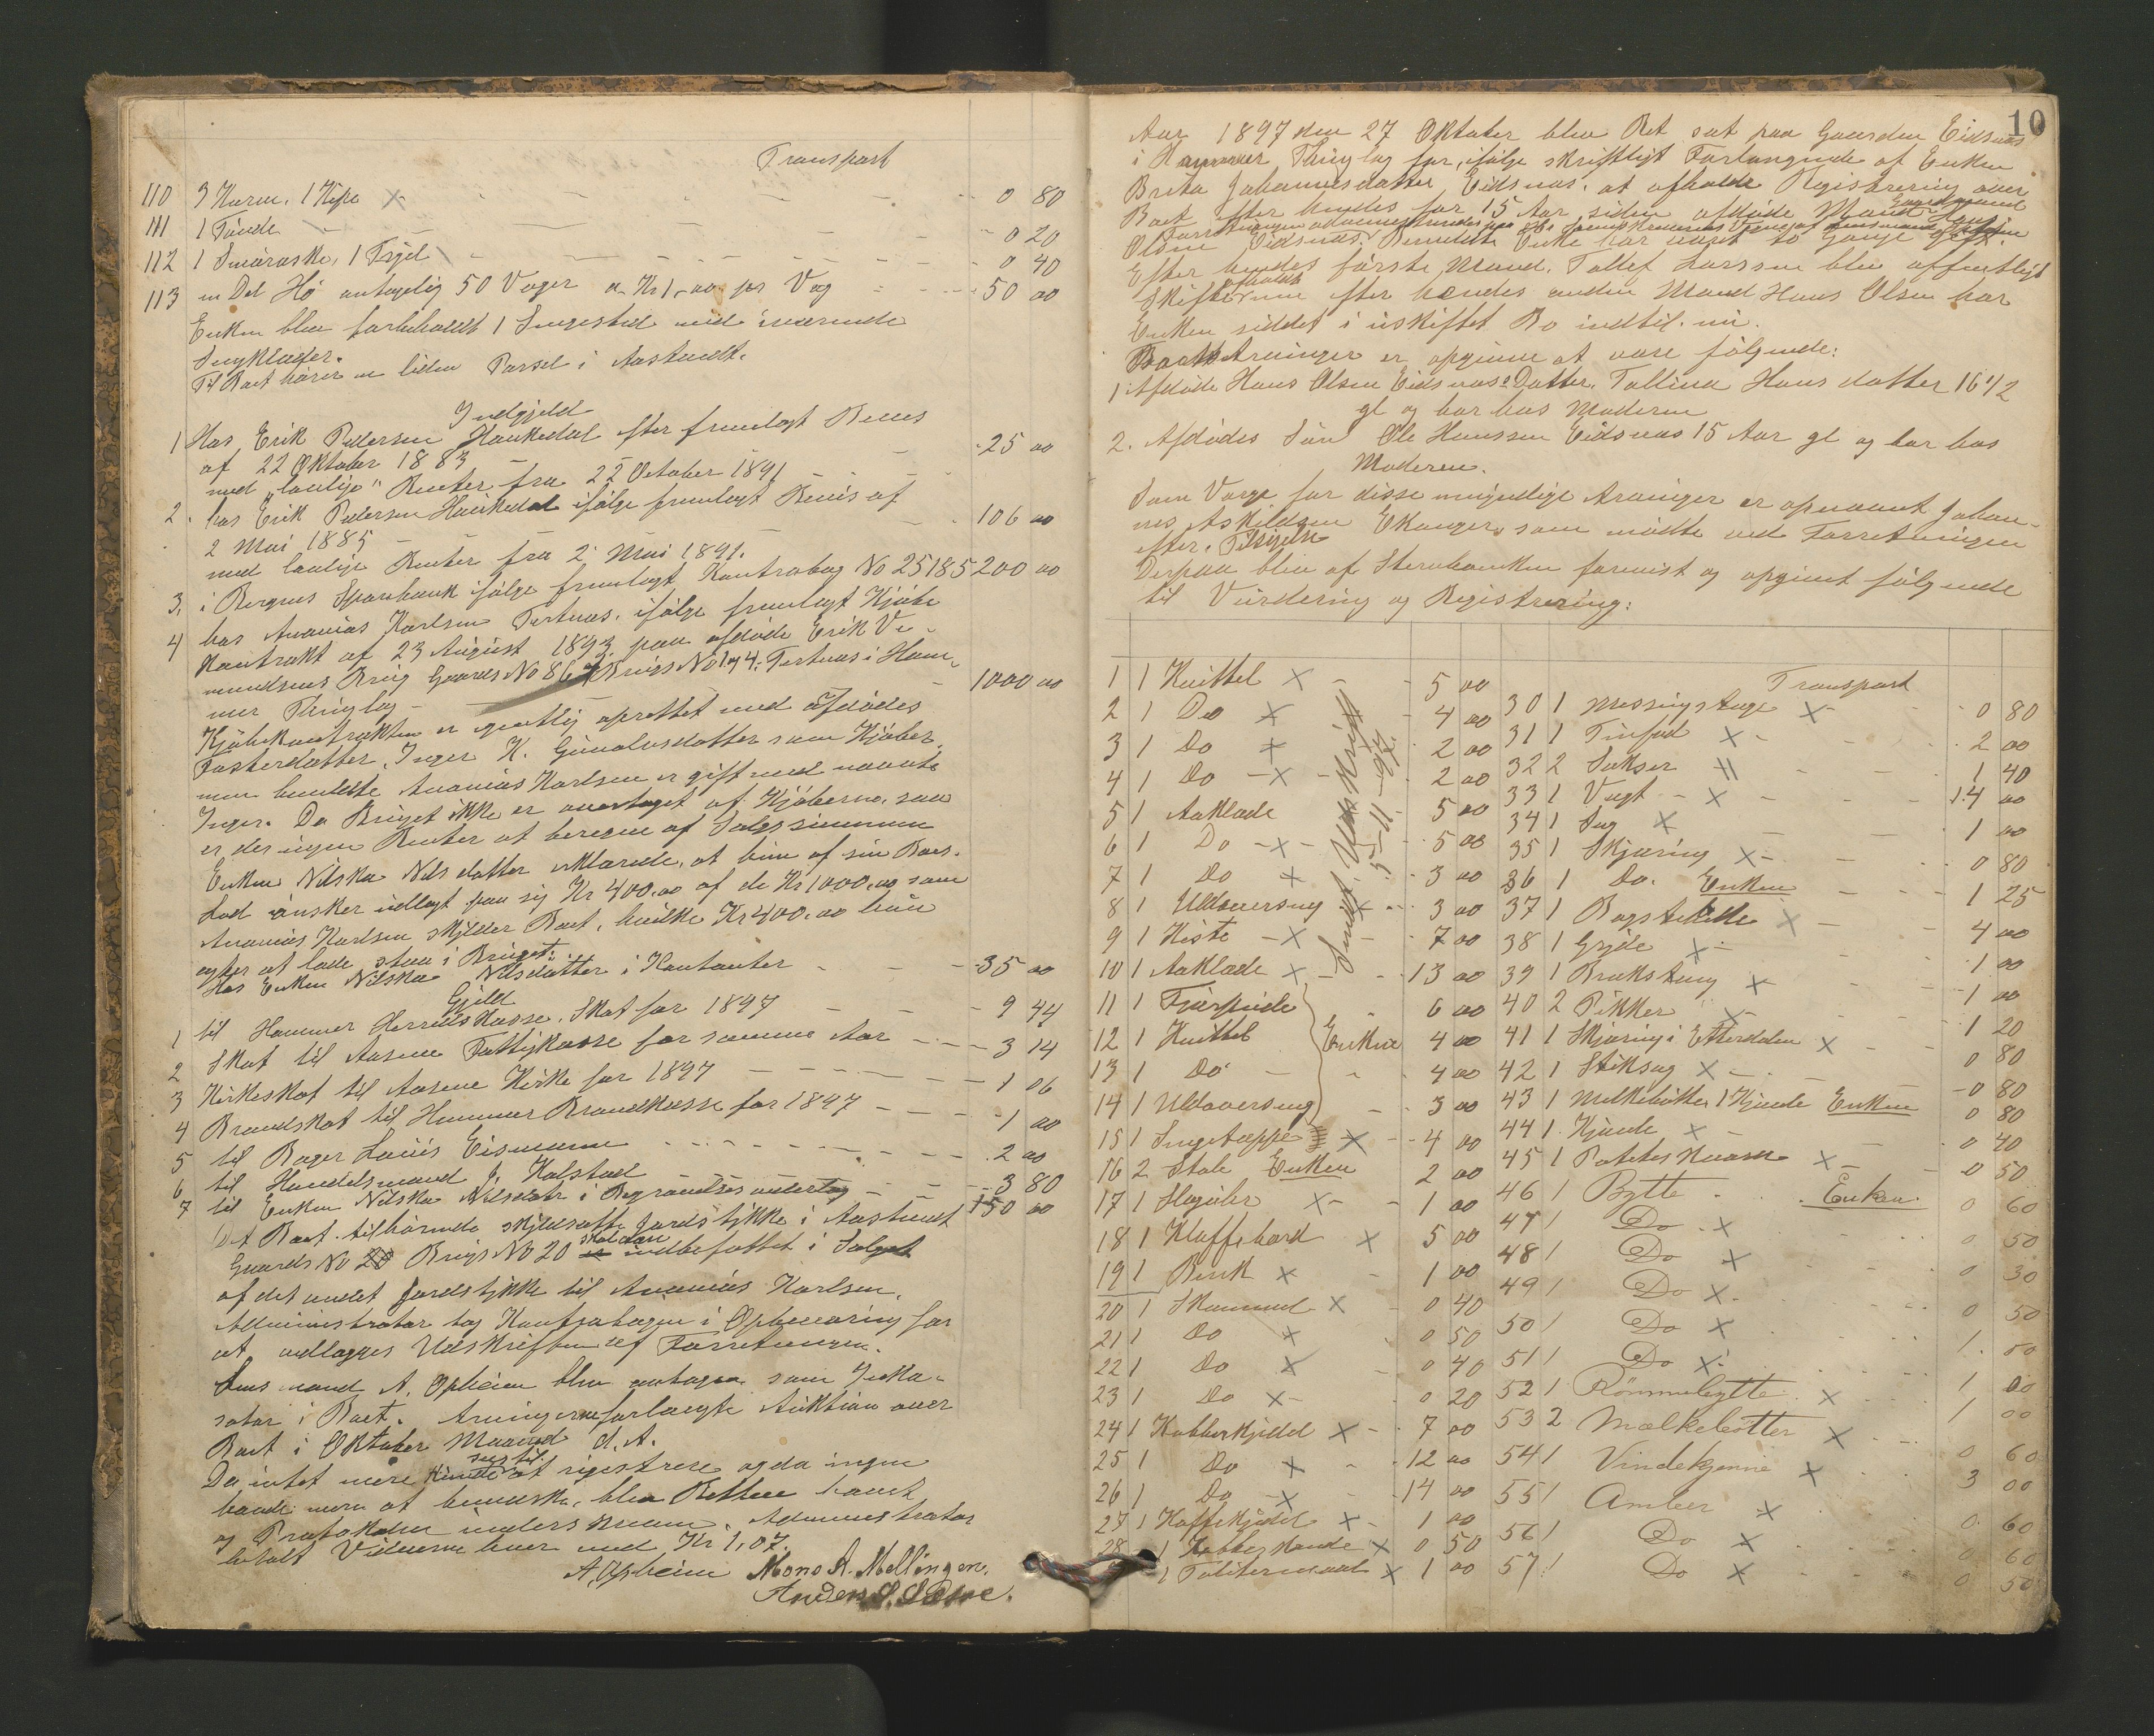 Transport
110 3 Kurve, 1 Kipe × 0 80
111 1 Tønde 0 20
112 1 Smøraske, 1 Trýel 0 40
113 en Del Hø antagelig 50 Voger a Kr 1,00 pr Vog 50 00
Enken blev forbeholdt 1 Sengested med iværende
Sengklæder.
Til Boet hører en liden Parsel i Aastundt.
Indgjeld
1 Hos Erik Pedersen Haukedal efter fremlagt Beves
af 22 Oktober 1883 25 00
med "lovlige" Renter fra 22 October 1891
2. hos Erik Pedersen Haukedal ifølge fremlagt Bevis af
2 Mai 1885 106 00
med lovlige Renter fra 2 Mai 1891.
3. i Bergens Sparebank ifølge fremlagt Kontrabog No 25185 200 00
4 hos Ananias Karlsen Tertnæs, ifølge fremlagt Kjøbe
Kontrakt af 23 August 1893 paa afdøde Erik
mundsens Brug Gaards No 86 Brugs No 1 og 4. Tertnæs i Ham-
mer Thinglag 1000 00
Kjøbekontrakten er egentlig oprettet med afdødes
Fosterdatter, Inger K. Gunolvsdatter som Kjøber,
men bemeldte Ananias Karlsen er gift med nævnte
Inger. Da Bruget ikke er overtaget af Kjøberne, saa
er der ingen Renter at beregne af Salgssummen
Enken Nilska Nilsdatter erklærede, at hun af sin Boes-
Lod ønsker udlagt paa sig Kr 400,00 af de Kr 1000,00 som
Ananias Karlsen skylder Boet, hvilke Kr 400,00 hun
agter at lade staa i Bruget.
Hos Enken Nilska Nilsdatter i Kontanter 35 00
Gjeld
1 til Hammer Herredskasse, Skat for 1897 9 44
2 Skat til Aasene Fattigkasse for samme Aar 3 14
3 Kirkeskat til Aasene Kirke for 1897 1 06
4 Brandskat til Hammer Brandkasse for 1897 1 00
5 til Bager Louis Eismann 2 00
6 til Handelsmand J. Kalstad 3 80
7 til Enken Nilska Nilsdatr i Begravelses 150 00
Det Boet tilhørende skyldsatte Jordstykke i Aastundt
skal være
Gaards No 20 Brugs No 20 er indbefattet i Salget
af det andet Jordstykke til Ananias Karlsen.
Administrator tog Kontrabogen i Opbevaring for
at vedlægges Udskriften af Forretningen.
Lensmand A. Opheim blev antagen som Inka-
sator i Boet. Arvingerne forlangte Auktion over
Boet i Oktober Maaned d.A.
sees til
Da intet mere kunde at registrere og da ingen
havde mere at bemærke, blev Retten hævet
og Protokollen underskreven. Administrator
betalt Vidnerne hver med Kr 1,07.
A Opheim Mons A. Mellingen.
Anders
10
Aar 1897 den 27 Oktober blev Ret sat paa Gaarden Eidsnæs
i Hammer Thinglag for, ifølge skriftligt Forlangende af Enken
Brita Johannesdatter Eidsnæs, at afholde Registrering over
Boet efter hendes for 15 Aar siden afdøde Mand Gaardmand Hans
Olsen Eidsnæs. Bemeldte Enke har været to Gange gift.
Efter hendes første Mand, Tollef Larssen blev offentligt
afholdt
Skifte men efter hendes anden Mand Hans Olsen har
Enken siddet i uskiftet Bo indtil nu.
Boets Arvinger er opgivne at være følgende:
1 Afdøde Hans Olsen Eidsnæs's Datter, Tolline Hansdatter 16 1/2
gl og bor hos Moderen
2. Afdødes Søn Ole Hanssen Eidsnæs 15 Aar gl og bor hos
Moderen.
Som Værge for disse umyndige Arvinger er opnævnt Johan-
nes Askildsen Ekanger, som mødte ved Forretningen
efter Tilsigelse
Derpaa blev af Stervboenken forevist og opgivet følgende
til Vurdering og Registrering:
1 1 Kvittel × 5 00
2 1 Do × 4 00
3 1 Do × 2 00
4 1 Do × 2 00
5 1 Aaklæde 5 00
6 1 Do × 5 00
7 1 Do × 3 00
8 1 Uldoversæng × 3 00
9 1 Kiste × 7 00
10 1 Aaklæde × 13 00
11 1 Fjærpude 6 00
12 1 Kvittel Enken 4 00
13 1 Do 4 00
14 1 Uldoversæng 3 00
15 1 Sengetæppe × 4 00
16 2 Stole Enken 2 00
17 1 Høgsæte × 1 00
18 1 Klaffebord × 5 00
19 1 Benk × 1 00
20 1 Skammel × 0 40
21 1 Do × 0 50
22 1 Do × 0 40
23 1 Do × 0 20
24 1 Kobberkjedel × 7 00
25 1 Do × 12 00
26 1 Do × 14 00
27 1 Kaffekjedel × 1 00
28 1 Kobberkande × 0 50
1 Tolitermaal × 1 00
Udskrift
5-11-97.
Transport
30 1 Messingstage × 0 80
31 1 Tinfad × 2 00
32 2 Sakser 1 40
33 1 Vægt × 14 00
34 1 Sag × 1 00
35 1 Skjæring × 0 80
36 1 Do. Enken 1 25
37 1 Bagstehelle × 4 00
38 1 Gryde × 1 00
39 1 Brækstang × 1 00
40 2 Pikker × 1 20
41 1 Skjæring i Etterdalen × 0 80
42 1 Stiksag × 0 80
43 1 Melkebøtte, 1 Kjande Enken 0 80
44 1 Kjande × 0 40
45 1 Poteteskværn × 0 50
46 1 Bytte Enken 0 60
47 1 Do × 0 50
48 1 Do × 0 30
49 1 Do × 0 50
50 1 Do × 1 00
51 1 Do × 1 00
52 1 Rømmebytte × 1 00
53 2 Mælkebøtter × 0 60
54 1 Vindekjerne × 3 00
55 1 Amber × 0 60
56 1 Do × 0 60
57 1 Do × 0 50